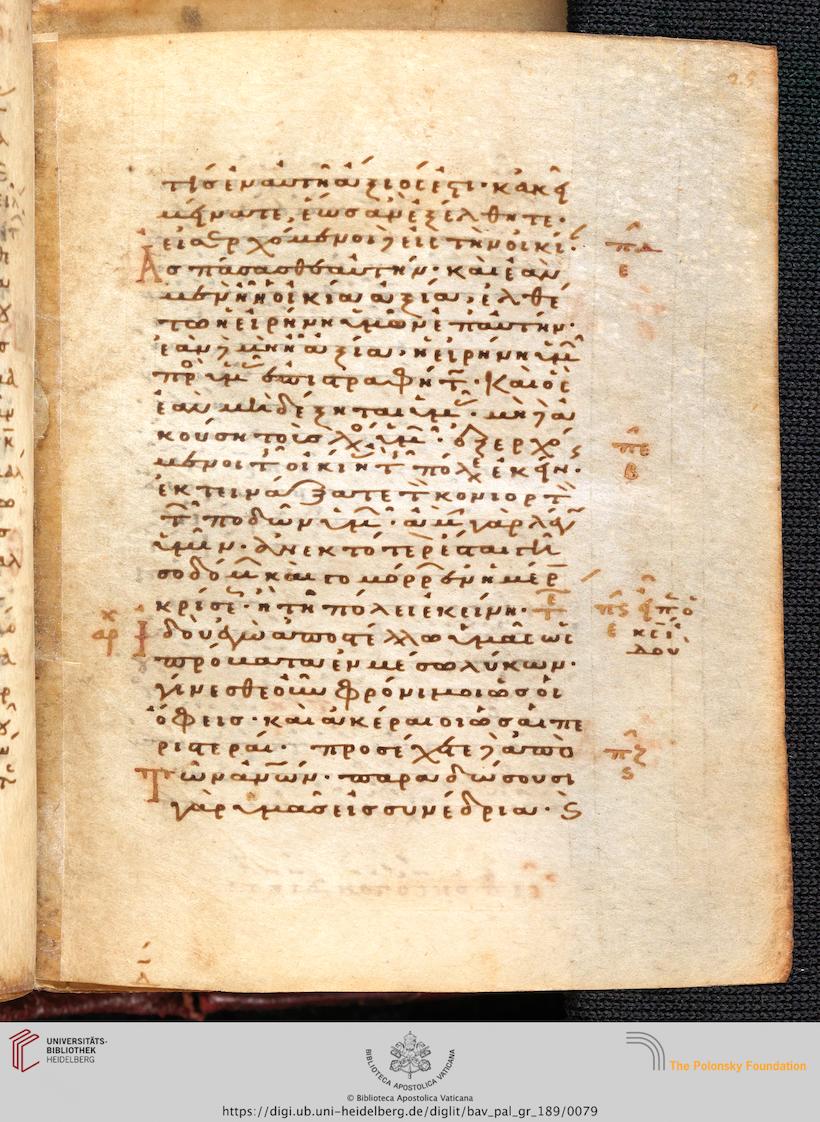 τις ἐν αὐτῇ ἄξιός ἐστι· κἀκεῖ
μείνατε, ἕως ἂν ἐξέλθητε·
εἰσερχόμενοι δὲ εἰς τὴν οἰκί
ἀσπάσασθε αὐτήν· καὶ ἐὰν
μὲν ἡ οἰκία ἀξία, ἐλθέ
τω ἡ εἰρήνη ὑμῶν ἐπ αὐτήν·
ἐὰν δὲ μὴ ᾖ ἀξία, ἡ εἰρήνη ὑμ
πρ ὑμ ἐπιστραφήτ· Καὶ ὃς
ἐὰν μὴ δέξηται ὑμ· μηδὲ ἀ
κούσῃ τοὺς λγ ὑμ· ἐξερχό
μενοι τ οἰκι ἢ τ πόλ ἐκείν·
ἐκτινάξατε τ κονιορτ
τ ποδῶν ὑμ· ἀμ γὰρ λέγ
ὑμῖν· ἀνεκτότερ ἔσται γῆ
σοδόμ καὶ γομόρρ ἐν ἡμέρ
κρίσε· ἢ τῇ πόλει ἐκείνῃ·
Ἰδοὺ ἐγὼ ἀποστέλλω ὑμᾶς ὡς
πρόβατα ἐν μέσω λύκων·
γίνεσθε οὖν φρόνιμοι ὡς οἱ
ὄφεις· καὶ ἀκέραιοι ὡς αἱ πε
ριστεραί· προσέχετε δὲ ἀπὸ
Τῶν ἀνῶν· παραδώσουσι
γὰρ ὑμᾶς εἰς συνέδρια· ϛ
UNIVERSITÄTS-
BIBLIOTHEK
HEIDELBERG
BIBLIOTHECA APOSTOLICA VATICANA
The Polonsky Foundation
© Biblioteca Apostolica Vaticana
https://digi.ub.uni-heidelberg.de/diglit/bav_pal_gr_189/0079